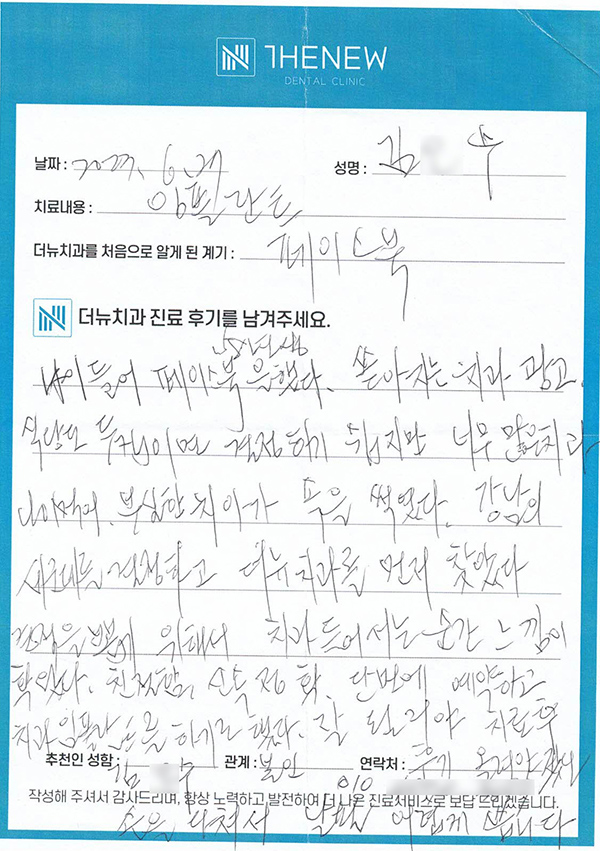 THENEW
DENTAL CLINIC
날짜 : 6.
성명 : 김 수
치료내용 : 임플란트
더뉴치과를 처음으로 알게 된 계기 : 페이스북
더뉴치과 진료 후기를 남겨주세요.
나이들어 페이스북을 했다. 쏟아지는 치과 광고.
식당도 두 집이면 결정하기 쉽지만 너무 많은 치과
나이먹게. 부실한 치아가 속을 썩였다. 강남의
세 군데를 결정하고 더뉴치과를 먼저 찾았다
결정을 위해서 치과 들어서는 순간 느낌이
확 왔다. 친절함. 신속 정확. 단번에 예약하고
치과 임플란트를 하기로 했다. 잘 되리라 치료 후
추천인 성함 : 김 수 관계 : 본인 연락처 : 010
후기
작성해 주셔서 감사드리며, 항상 노력하고 발전하여 더 나은 진료서비스로 보답 드리겠습니다.
손을 다쳐서 어렵게 씁니다